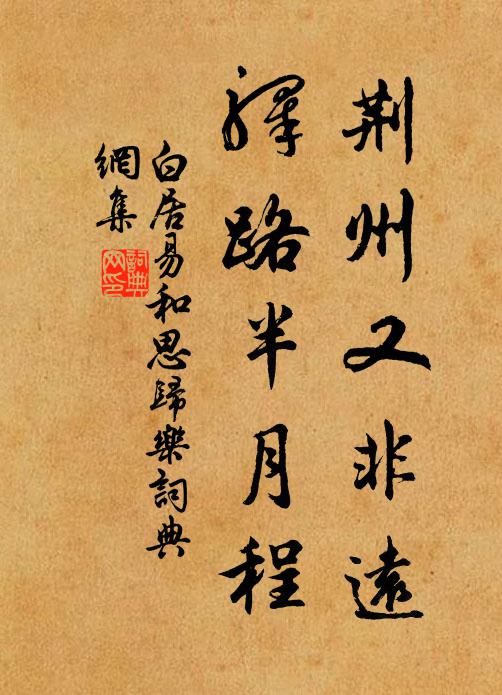 荆州又非遠
驛路半月程
白居易和思歸樂詞典
網集
詞典
网印